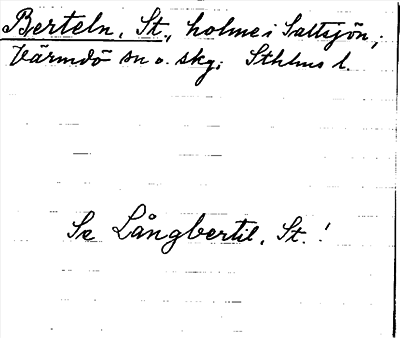 Berteln, St., holme i Saltsjön,
Värmdö sn o. skg; Sthlms l.
Se Långbertil, St.!